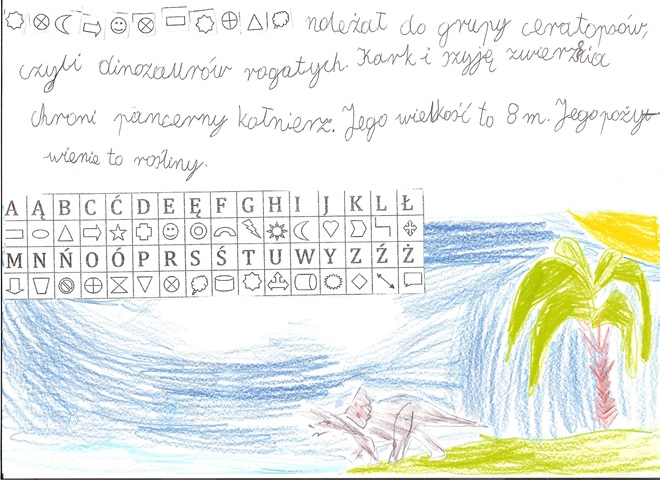 należał do grupy ceratopsów,
czyli dinozaurów rogatych. Kark i szyję zwierzęcia
chroni pancerny kołnierz. Jego wielkość to 8 m. Jego poży
wienie to rośliny.
A Ą B C Ć D E Ę F G H I J K L Ł
M N Ń O Ó P R S Ś T U W Y Z Ź Ż